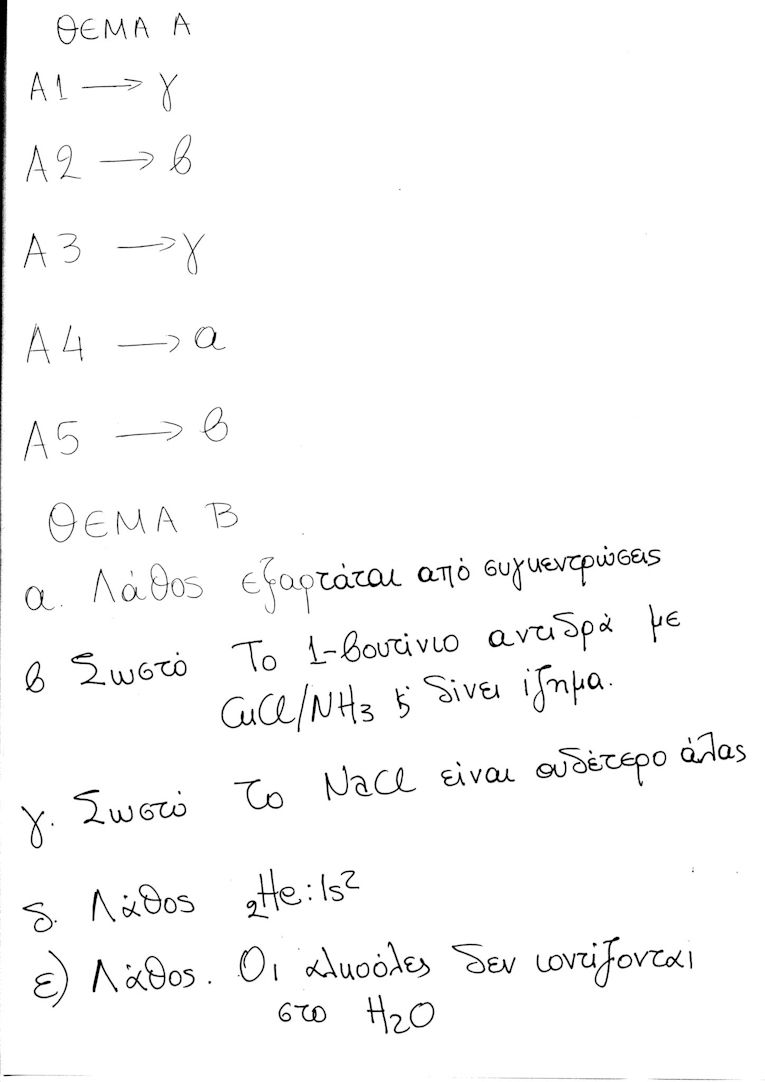 ΘΕΜΑ Α
Α1 → γ
Α2 → β
Α3 → γ
Α4 → α
Α5 → β
ΘΕΜΑ Β
α. Λάθος εξαρτάται από συγκεντρώσεις
β Σωστό Το 1-βουτίνιο αντιδρά με
CuCl/NH3 & δίνει ίζημα.
γ. Σωστό Το NaCl είναι ουδέτερο άλας
δ. Λάθος ₂He: 1s²
ε) Λάθος. Οι αλκοόλες δεν ιοντίζονται
στο H2O